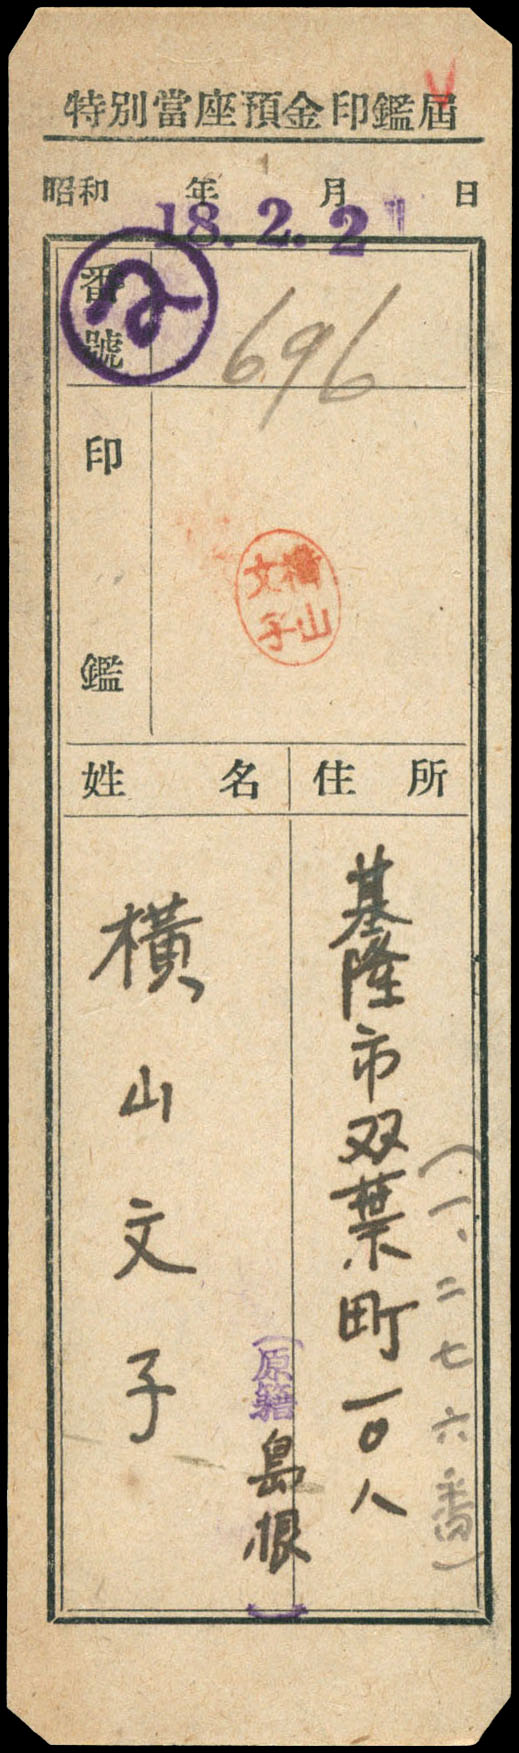 特別當座預金印鑑届
昭和　年　月　日
18.2.2
番號
696
印鑑
横山
文子
住所
姓名
基隆市双葉町一〇八
(一、二七六番)
横山文子
(原籍 島根)